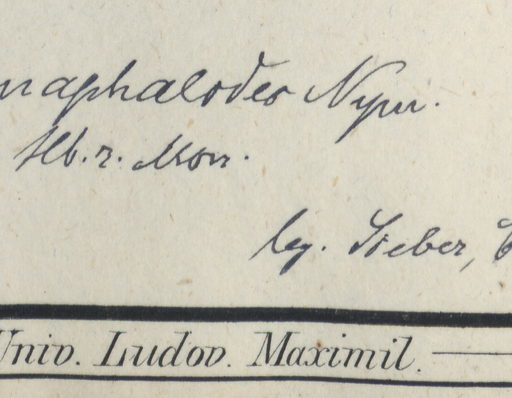 naphalodes Nym.
Hb. r. Mon.
leg. Sieber,
Univ. Ludov. Maximil.